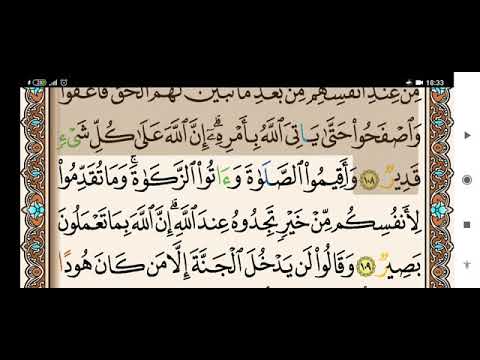 مِّنْ عِندِ أَنفُسِهِم مِّنۢ بَعْدِ مَا تَبَيَّنَ لَهُمُ ٱلْحَقُّ فَٱعْفُوا۟
وَٱصْفَحُوا۟ حَتَّىٰ يَاتِىَ ٱللَّهُ بِأَمْرِهِۦٓۗ إِنَّ ٱللَّهَ عَلَىٰ كُلِّ شَىْءٍ
قَدِيرٌ ١٠٨ وَأَقِيمُوا۟ ٱلصَّلَوٰةَ وَءَاتُوا۟ ٱلزَّكَوٰةَۚ وَمَا تُقَدِّمُوا۟
لِأَنفُسِكُم مِّنْ خَيْرٍ تَجِدُوهُ عِندَ ٱللَّهِۗ إِنَّ ٱللَّهَ بِمَا تَعْمَلُونَ
بَصِيرٌ ١٠٩ وَقَالُوا۟ لَن يَدْخُلَ ٱلْجَنَّةَ إِلَّا مَن كَانَ هُودًا